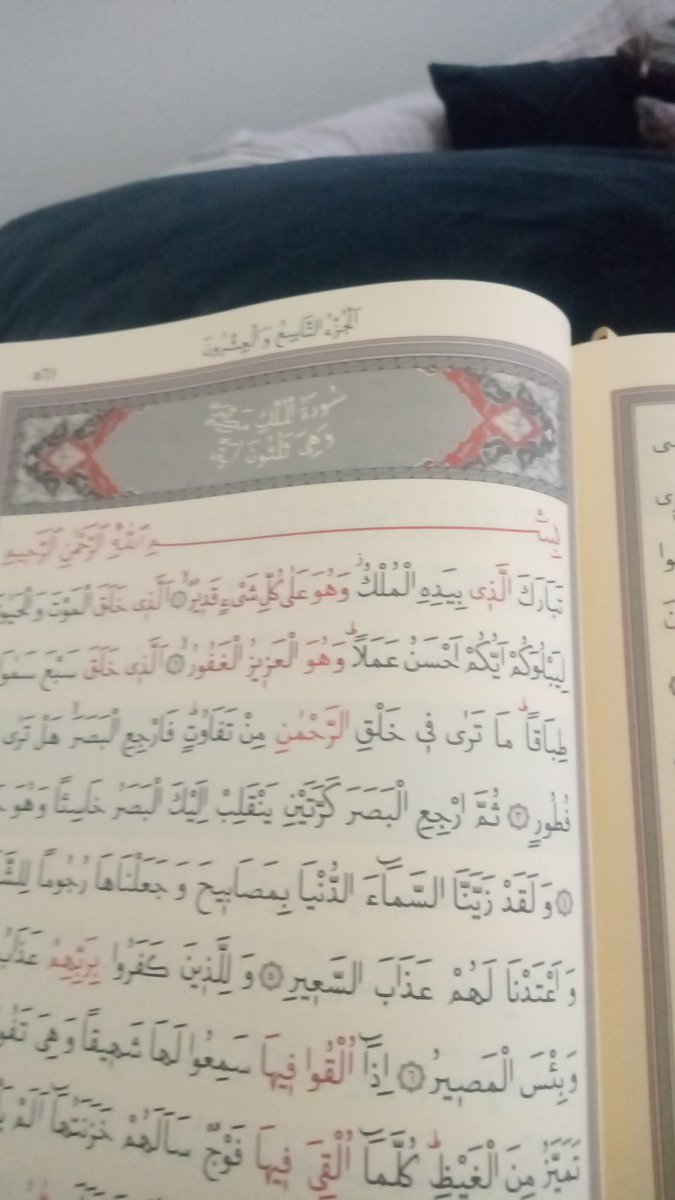 اَلْجُزْءُ التَّاسِعُ وَالْعِشْرُونَ
سُورَةُ الْمُلْكِ مَكِّيَّةٌ
وَهِىَ ثَلٰثُونَ اٰيَةً
بِسْــــمِ اللّٰهِ الرَّحْمٰنِ الرَّحِيمِ
تَبَارَكَ الَّذٖى بِيَدِهِ الْمُلْكُؗ وَهُوَ عَلٰى كُلِّ شَىْءٍ قَدٖيرٌۙ ﴿١﴾ اَلَّذٖى خَلَقَ الْمَوْتَ وَالْحَيٰوةَ
لِيَبْلُوَكُمْ اَيُّكُمْ اَحْسَنُ عَمَلاًؕ وَهُوَ الْعَزٖيزُ الْغَفُورُۙ ﴿٢﴾ اَلَّذٖى خَلَقَ سَبْعَ
طِبَاقاًؕ مَا تَرٰى فٖى خَلْقِ الرَّحْمٰنِ مِنْ تَفَاوُتٍؕ فَارْجِعِ الْبَصَرَۙ هَلْ تَرٰى
فُطُورٍ ﴿٣﴾ ثُمَّ ارْجِعِ الْبَصَرَ كَرَّتَيْنِ يَنْقَلِبْ اِلَيْكَ الْبَصَرُ خَاسِئاً وَهُوَ
﴿٤﴾ وَلَقَدْ زَيَّنَّا السَّمَٓاءَ الدُّنْيَا بِمَصَابٖيحَ وَجَعَلْنَاهَا رُجُوماً
وَاَعْتَدْنَا لَهُمْ عَذَابَ السَّعٖيرِ ﴿٥﴾ وَلِلَّذٖينَ كَفَرُوا بِرَبِّهِمْ عَذَابُ
وَبِئْسَ الْمَصٖيرُ ﴿٦﴾ اِذَٓا اُلْقُوا فٖيهَا سَمِعُوا لَهَا شَهٖيقاً وَهِىَ
تَمَيَّزُ مِنَ الْغَيْظِؕ كُلَّمَٓا اُلْقِىَ فٖيهَا فَوْجٌ سَاَلَهُمْ خَزَنَتُهَٓا اَلَمْ